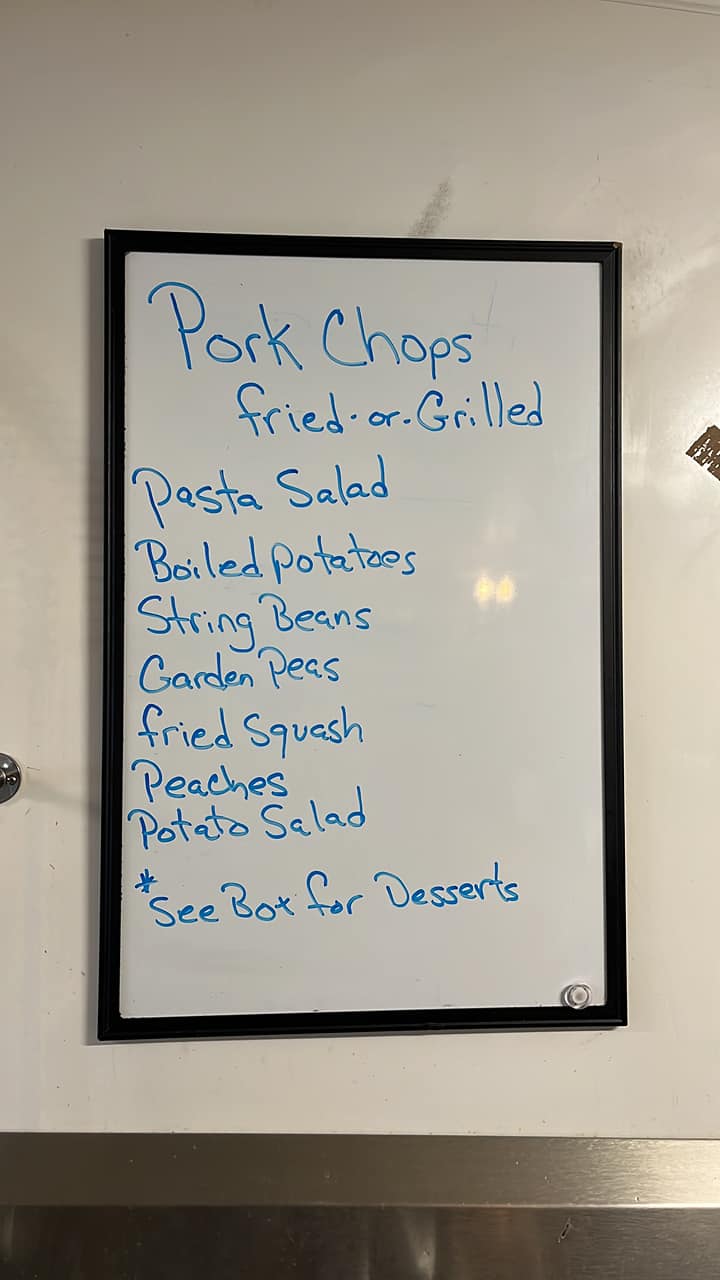 Pork Chops
fried-or-Grilled
Pasta Salad
Boiled potatoes
String Beans
Garden Peas
fried Squash
Peaches
Potato Salad
*See Box for Desserts